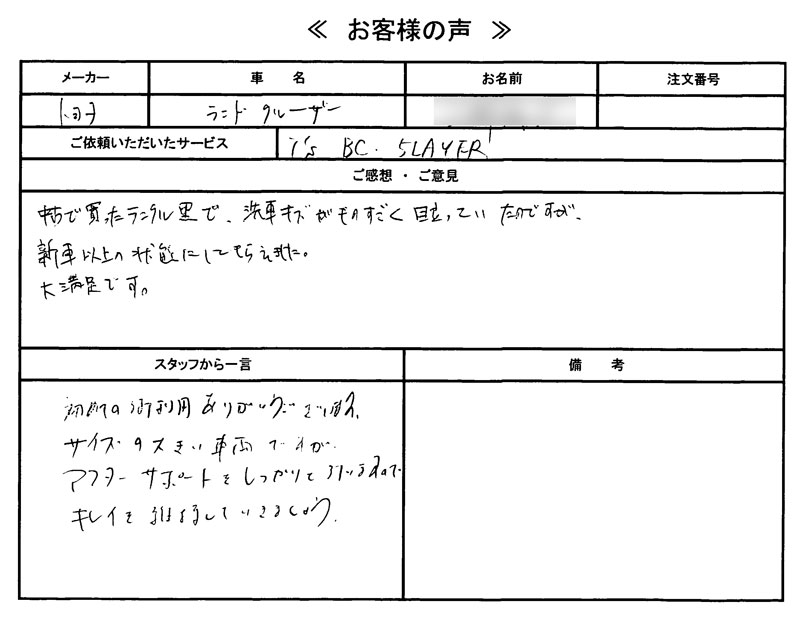 ≪ お客様の声 ≫
メーカー 車 名 お名前 注文番号
トヨタ ランドクルーザー
ご依頼いただいたサービス i's BC. 5LAYER
ご感想 ・ ご意見
中古で買ったランクル黒で、洗車キズがものすごく目立っていたのですが、
新車以上の状態にしてもらえました。
大満足です。
スタッフから一言 備 考
初めての御利用ありがとうございます。
サイズの大きい車両ですが、
アフターサポートをしっかりと行いますので
キレイを維持していきましょう。